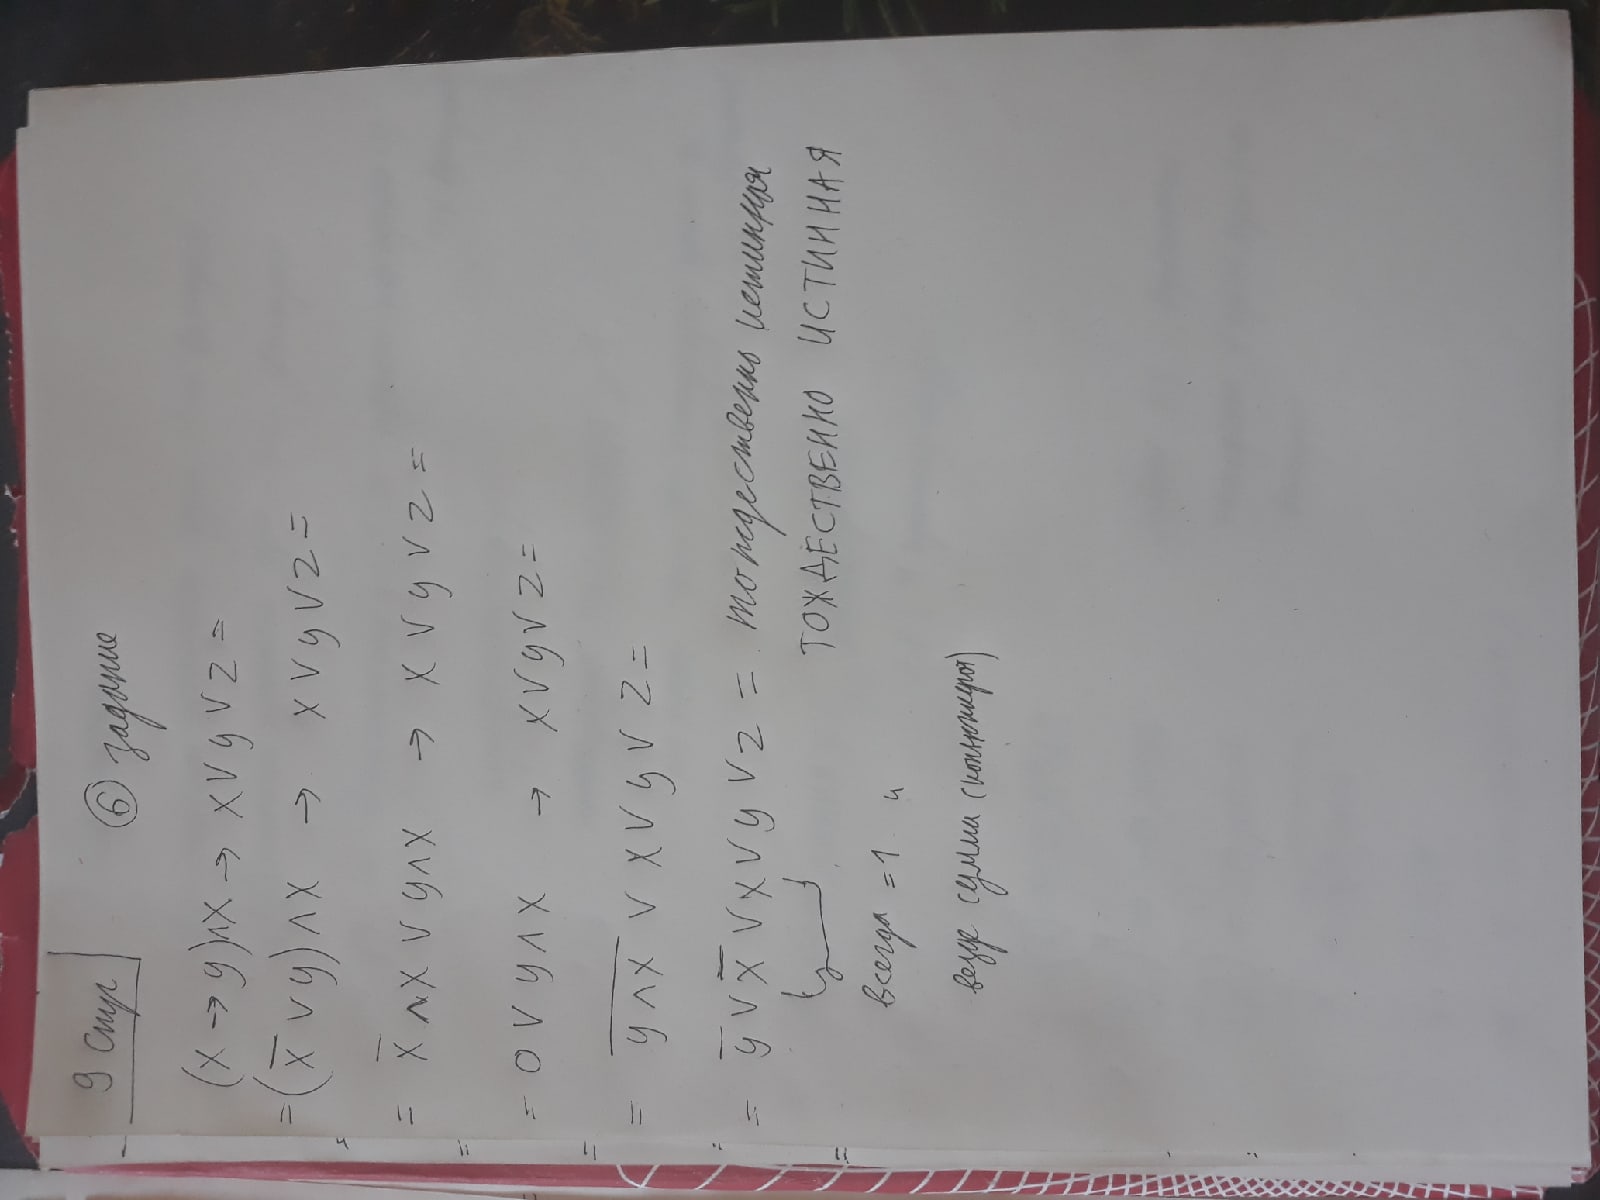 9 стр
⑥ задание
(x → y)∧x → x∨y∨z =
= (x̅ ∨ y)∧x → x∨y∨z =
= x̅ ∧x ∨ y∧x → x∨y∨z =
= 0 ∨ y∧x → x∨y∨z =
= y̅∧̅x̅ ∨ x∨y∨z =
= y̅ ∨ x̅ ∨x∨y∨z = тождественно истинная
ТОЖДЕСТВЕННО ИСТИННАЯ
всегда =1 и
везде сумма